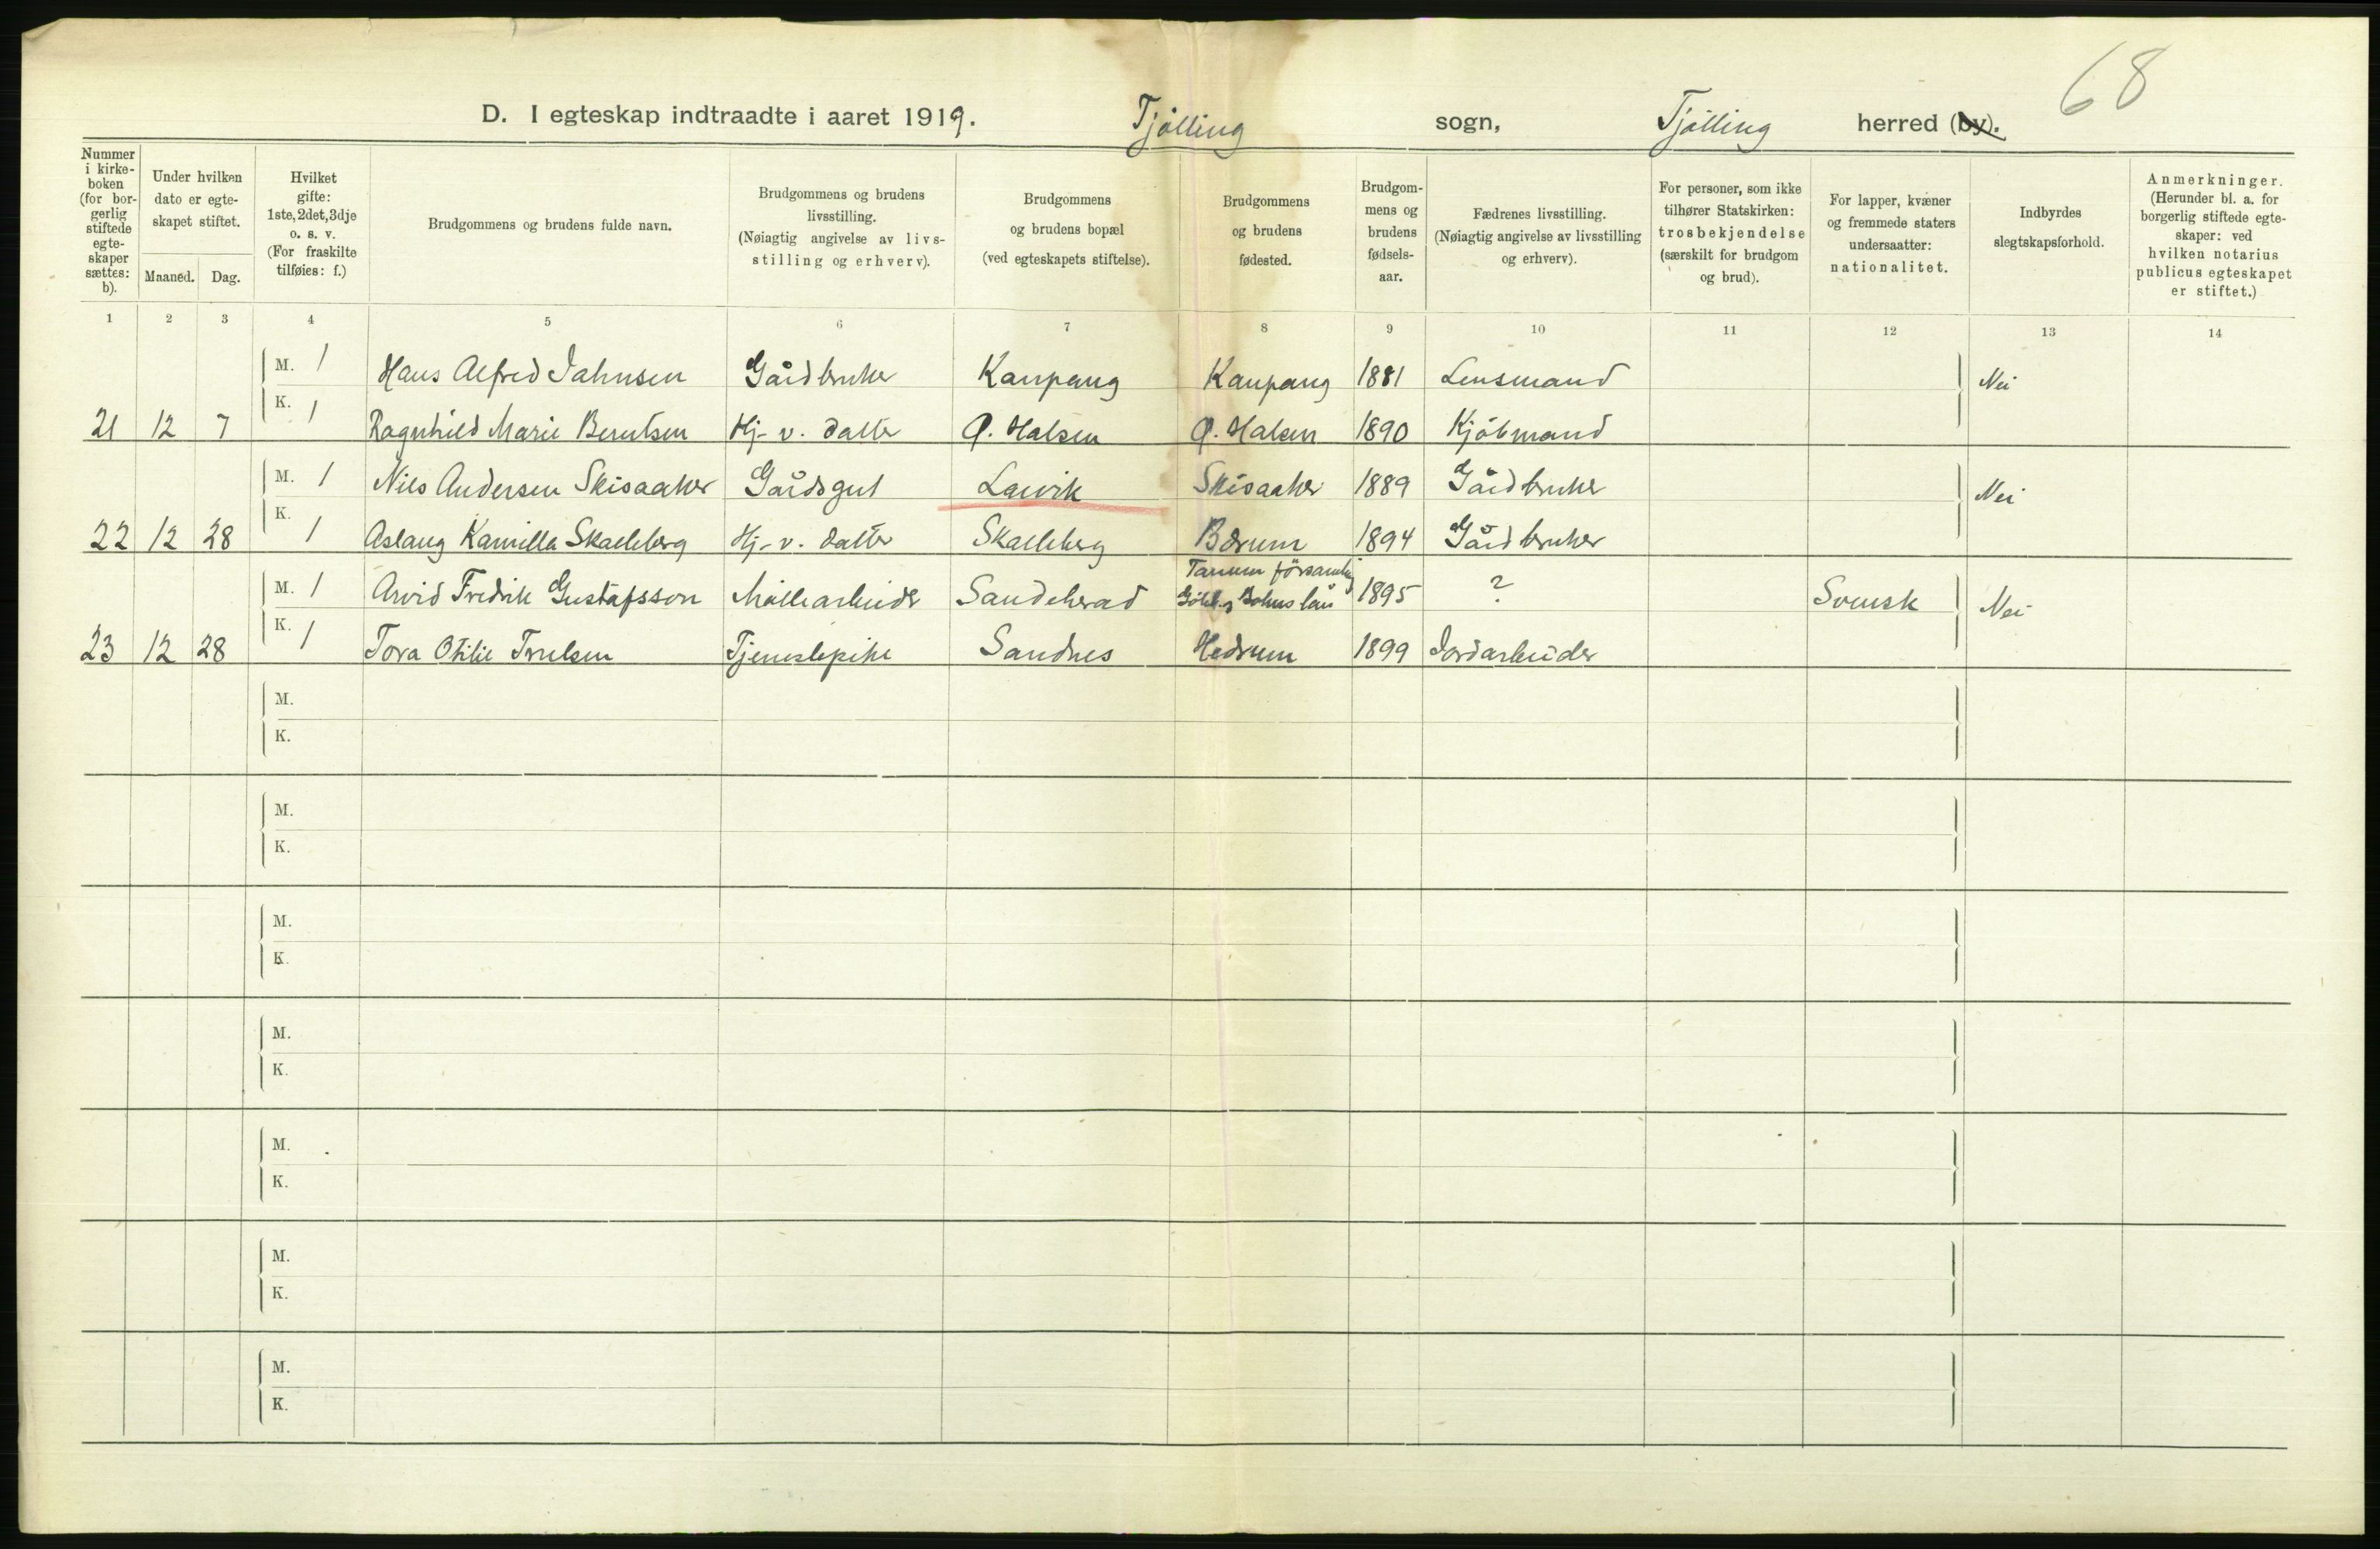 68
D. I egteskap indtraadte i aaret 1919. Tjølling sogn, Tjølling herred (by).
Nummer i kirkeboken (for borgerlig stiftede egteskaper sættes: b).
Under hvilken dato er egteskapet stiftet.
Maaned. Dag.
Hvilket gifte: 1ste, 2det, 3dje o. s. v. (For fraskilte tilføies: f.)
Brudgommens og brudens fulde navn.
Brudgommens og brudens livsstilling. (Nøiagtig angivelse av livsstilling og erhverv).
Brudgommens og brudens bopæl (ved egteskapets stiftelse).
Brudgommens og brudens fødested.
Brudgommens og brudens fødselsaar.
Fædrenes livsstilling. (Nøiagtig angivelse av livsstilling og erhverv).
For personer, som ikke tilhører Statskirken: trosbekjendelse (særskilt for brudgom og brud).
For lapper, kvæner og fremmede staters undersaatter: nationalitet.
Indbyrdes slegtskapsforhold.
Anmerkninger. (Herunder bl. a. for borgerlig stiftede egteskaper: ved hvilken notarius publicus egteskapet er stiftet.)
1 2 3 4 5 6 7 8 9 10 11 12 13 14
M. 1 Hans Alfred Jahnsen Gårdbruker Kaupang Kaupang 1881 Lensmand Nei
21 12 7 K. 1 Ragnhild Marie Berntsen Hj. v. datter Ø. Halsen Ø. Halsen 1890 Kjøbmand
M. 1 Nils Andersen Skisaaker Gårdsgut Larvik Skisaaker 1889 Gårdbruker Nei
22 12 28 K. 1 Aslaug Kamilla Skalleberg Hj. v. datter Skalleberg Bærum 1894 Gårdbruker
M. 1 Arvid Fredrik Gustafsson Møllearbeider Sandeherad Tanum församling Bohus län 1895 ? Svensk Nei
23 12 28 K. 1 Tora Otilie Trulsen Tjenestepike Sandnes Hedrum 1899 Jordarbeider
M.
K.
M.
K.
M.
K.
M.
K.
M.
K.
M.
K.
M.
K.